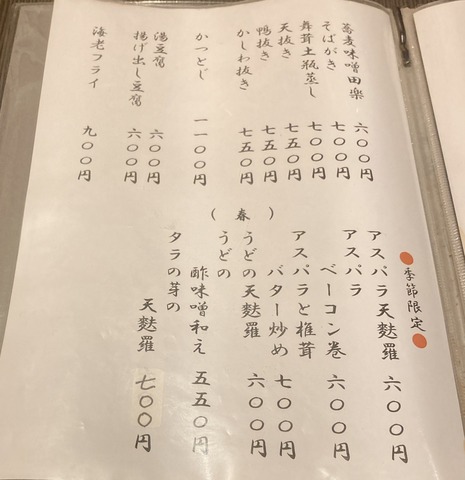 蕎麦味噌田楽 六〇〇円
そばがき 七〇〇円
舞茸土瓶蒸し 七〇〇円
天抜き 七五〇円
鴨抜き 七五〇円
かしわ抜き 七五〇円
かつとじ 一一〇〇円
湯豆腐 六〇〇円
揚げ出し豆腐 六〇〇円
海老フライ 九〇〇円
(春)
●季節限定●
アスパラ天麩羅 六〇〇円
アスパラ
ベーコン巻 六〇〇円
アスパラと椎茸
バター炒め 七〇〇円
うどの天麩羅 六〇〇円
うどの
酢味噌和え 五五〇円
タラの芽の
天麩羅 七〇〇円